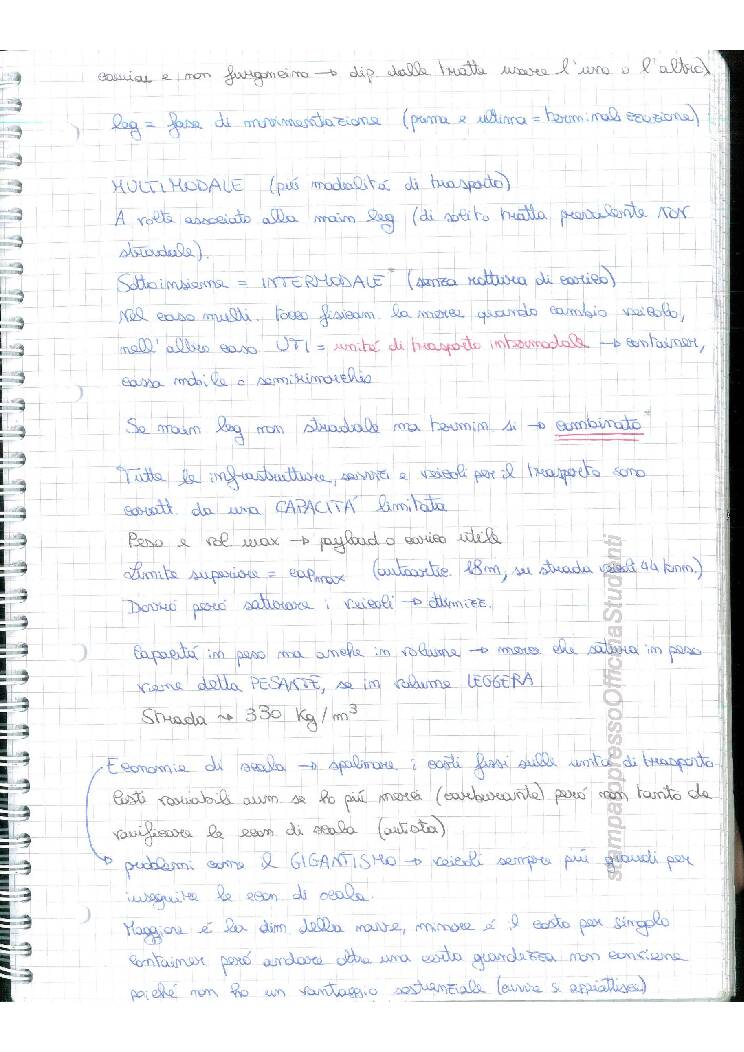 camion e non furgoncino → dip. dalle tratte usare l'uno o l'altro)
leg = fase di movimentazione (prima e ultima = terminalizzazione)
MULTIMODALE (più modalità di trasporto)
A volte associato alla main leg (di solito tratta prevalente NON
stradale).
Sottoinsieme = INTERMODALE" (senza rottura di carico)
Nel caso multi. tocco fisicam. la merce quando cambio veicolo,
nell'altro caso UTI = unità di trasporto intermodale → container,
cassa mobile o semirimorchio
Se main leg non stradale ma termin sì → combinato"
Tutte le infrastrutture, servizi e veicoli per il trasporto sono
caratt. da una CAPACITÁ limitata
Peso e vol max → payload o carico utile
Limite superiore = cap max (autoartic. 18m, su strada 44 tonn.)
Dovrò però saturare i veicoli → ottimizz.
Capacità in peso ma anche in volume → merce che satura in peso
viene detta PESANTE, se in volume LEGGERA
Strada ~> 330 Kg/m³
Economie di scala → spalmare i costi fissi sulle unità di trasporto
Costi variabili aum se ho più merci (carburante) però non tanto da
vanificare le econ di scala (autista)
→ problemi come il GIGANTISMO → veicoli sempre più grandi per
inseguire le econ di scala.
Maggiore è la dim della nave, minore è il costo per singolo
container però andare oltre una certa grandezza non conviene
poiché non ho un vantaggio sostanziale (curve si appiattisce)
stampatopressoOfficinaStudenti